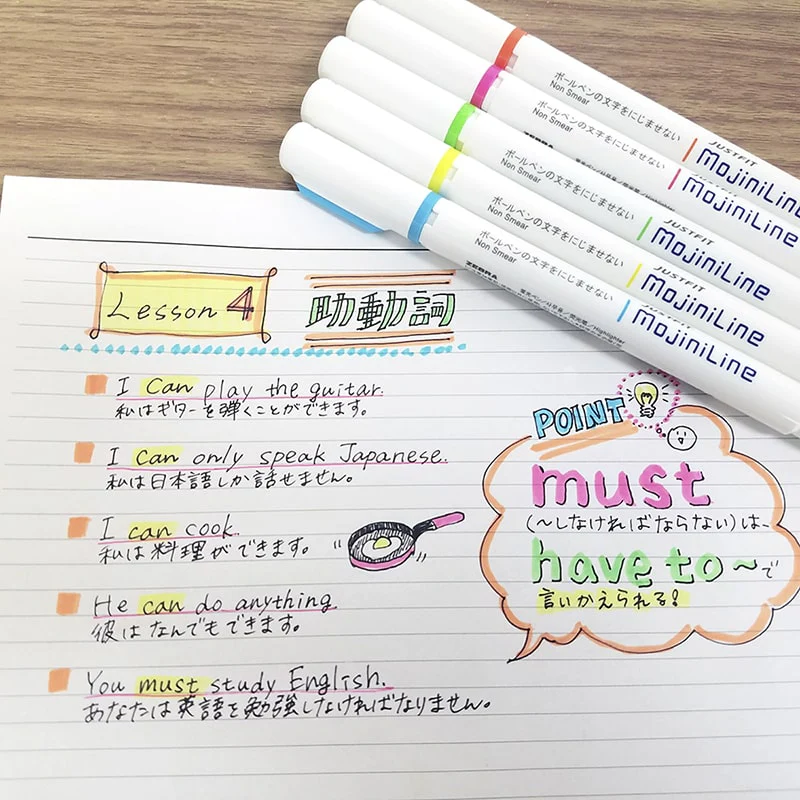 ボールペンの文字をにじませない
Non Smear
JUSTFIT
MojiniLine
ボールペンの文字をにじませない
Non Smear
MojiniLine
ボールペンの文字をにじませない
Non Smear
JUSTFIT
MojiniLine
ボールペンの文字をにじませない
Non Smear
JUSTFIT
MojiniLine
ボールペンの文字をにじませない
Non Smear
ZEBRA
JUSTFIT
MojiniLine
Lesson 4 助動詞
I can play the guitar.
私はギターを弾くことができます。
I can only speak Japanese.
私は日本語しか話せません。
I can cook.
私は料理ができます。
He can do anything.
彼はなんでもできます。
You must study English.
あなたは英語を勉強しなければなりません。
POINT
must
(〜しなければならない)は、
have to 〜で
言いかえられる!